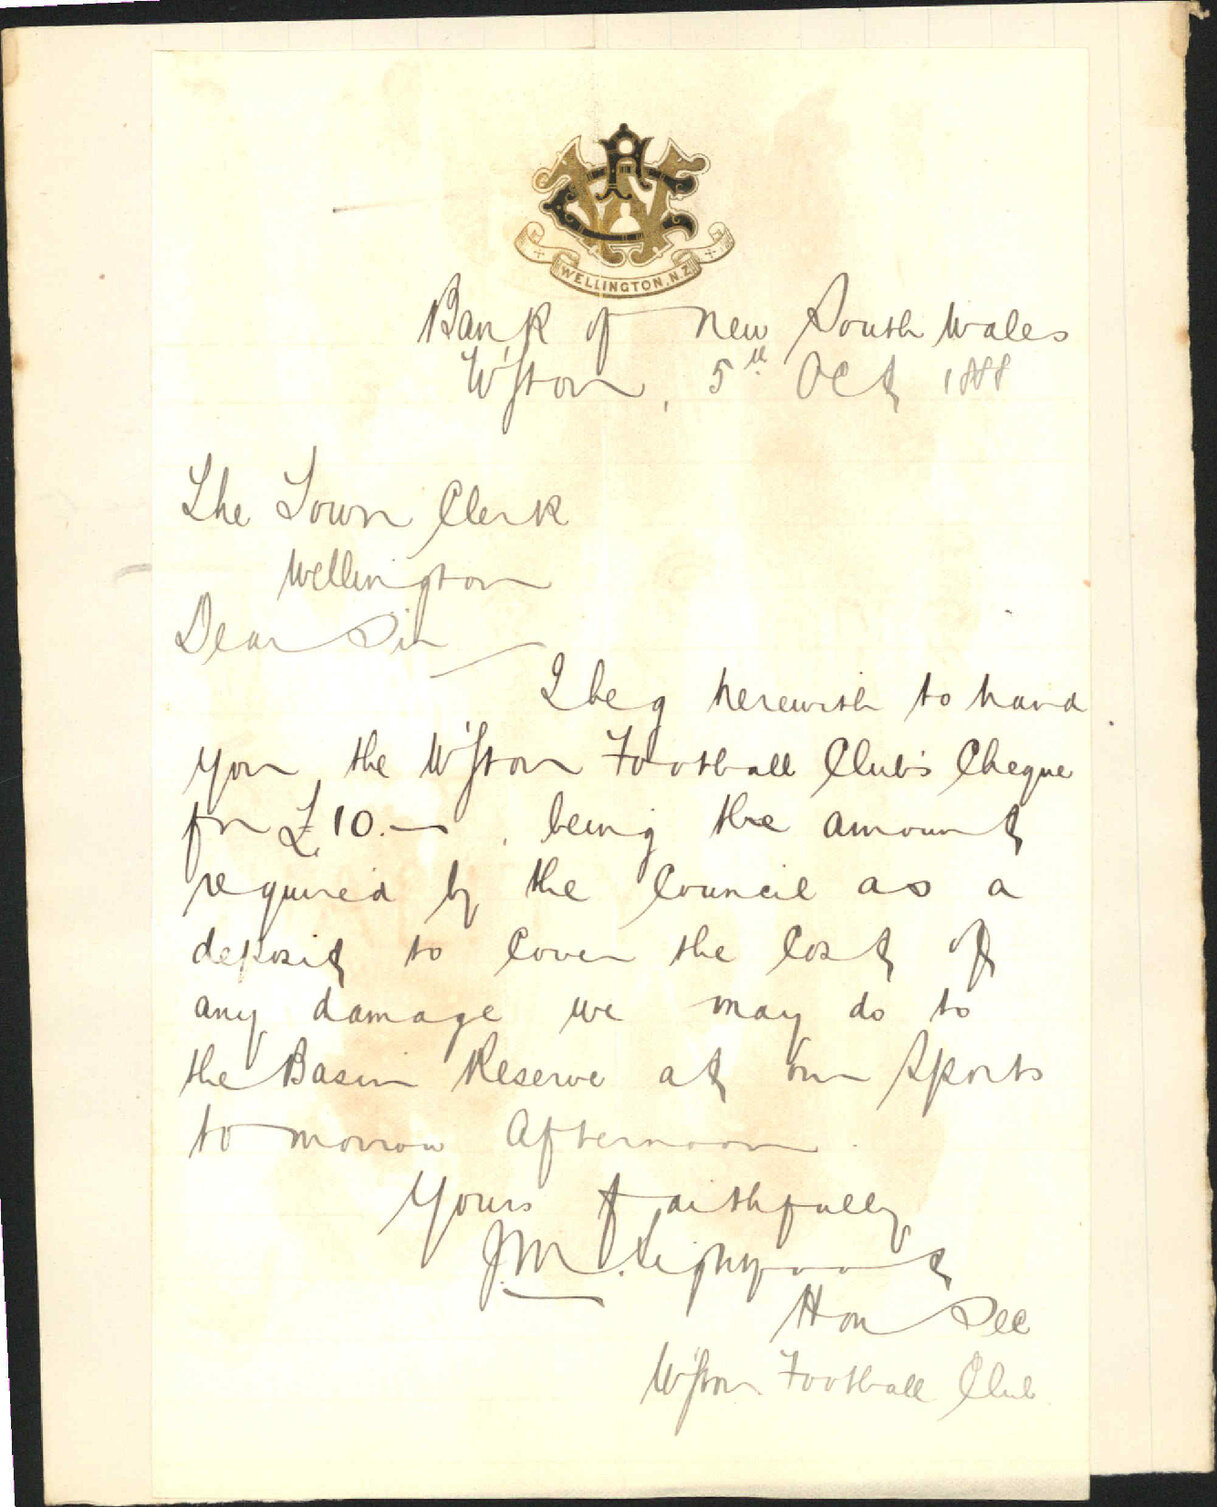 WELLINGTON. N.Z.
Bank of New South Wales
W'gton, 5th Oct 1888
The Town Clerk
Wellington
Dear Sir
I beg herewith to hand
you the W'gton Football Club's Cheque
for £10.—, being the amount
required by the Council as a
deposit to cover the cost of
any damage we may do to
the Basin Reserve at our Sports
to morrow Afternoon.
Yours faithfully
J.M. Lightfoot
Hon Sec
W'gton Football Club